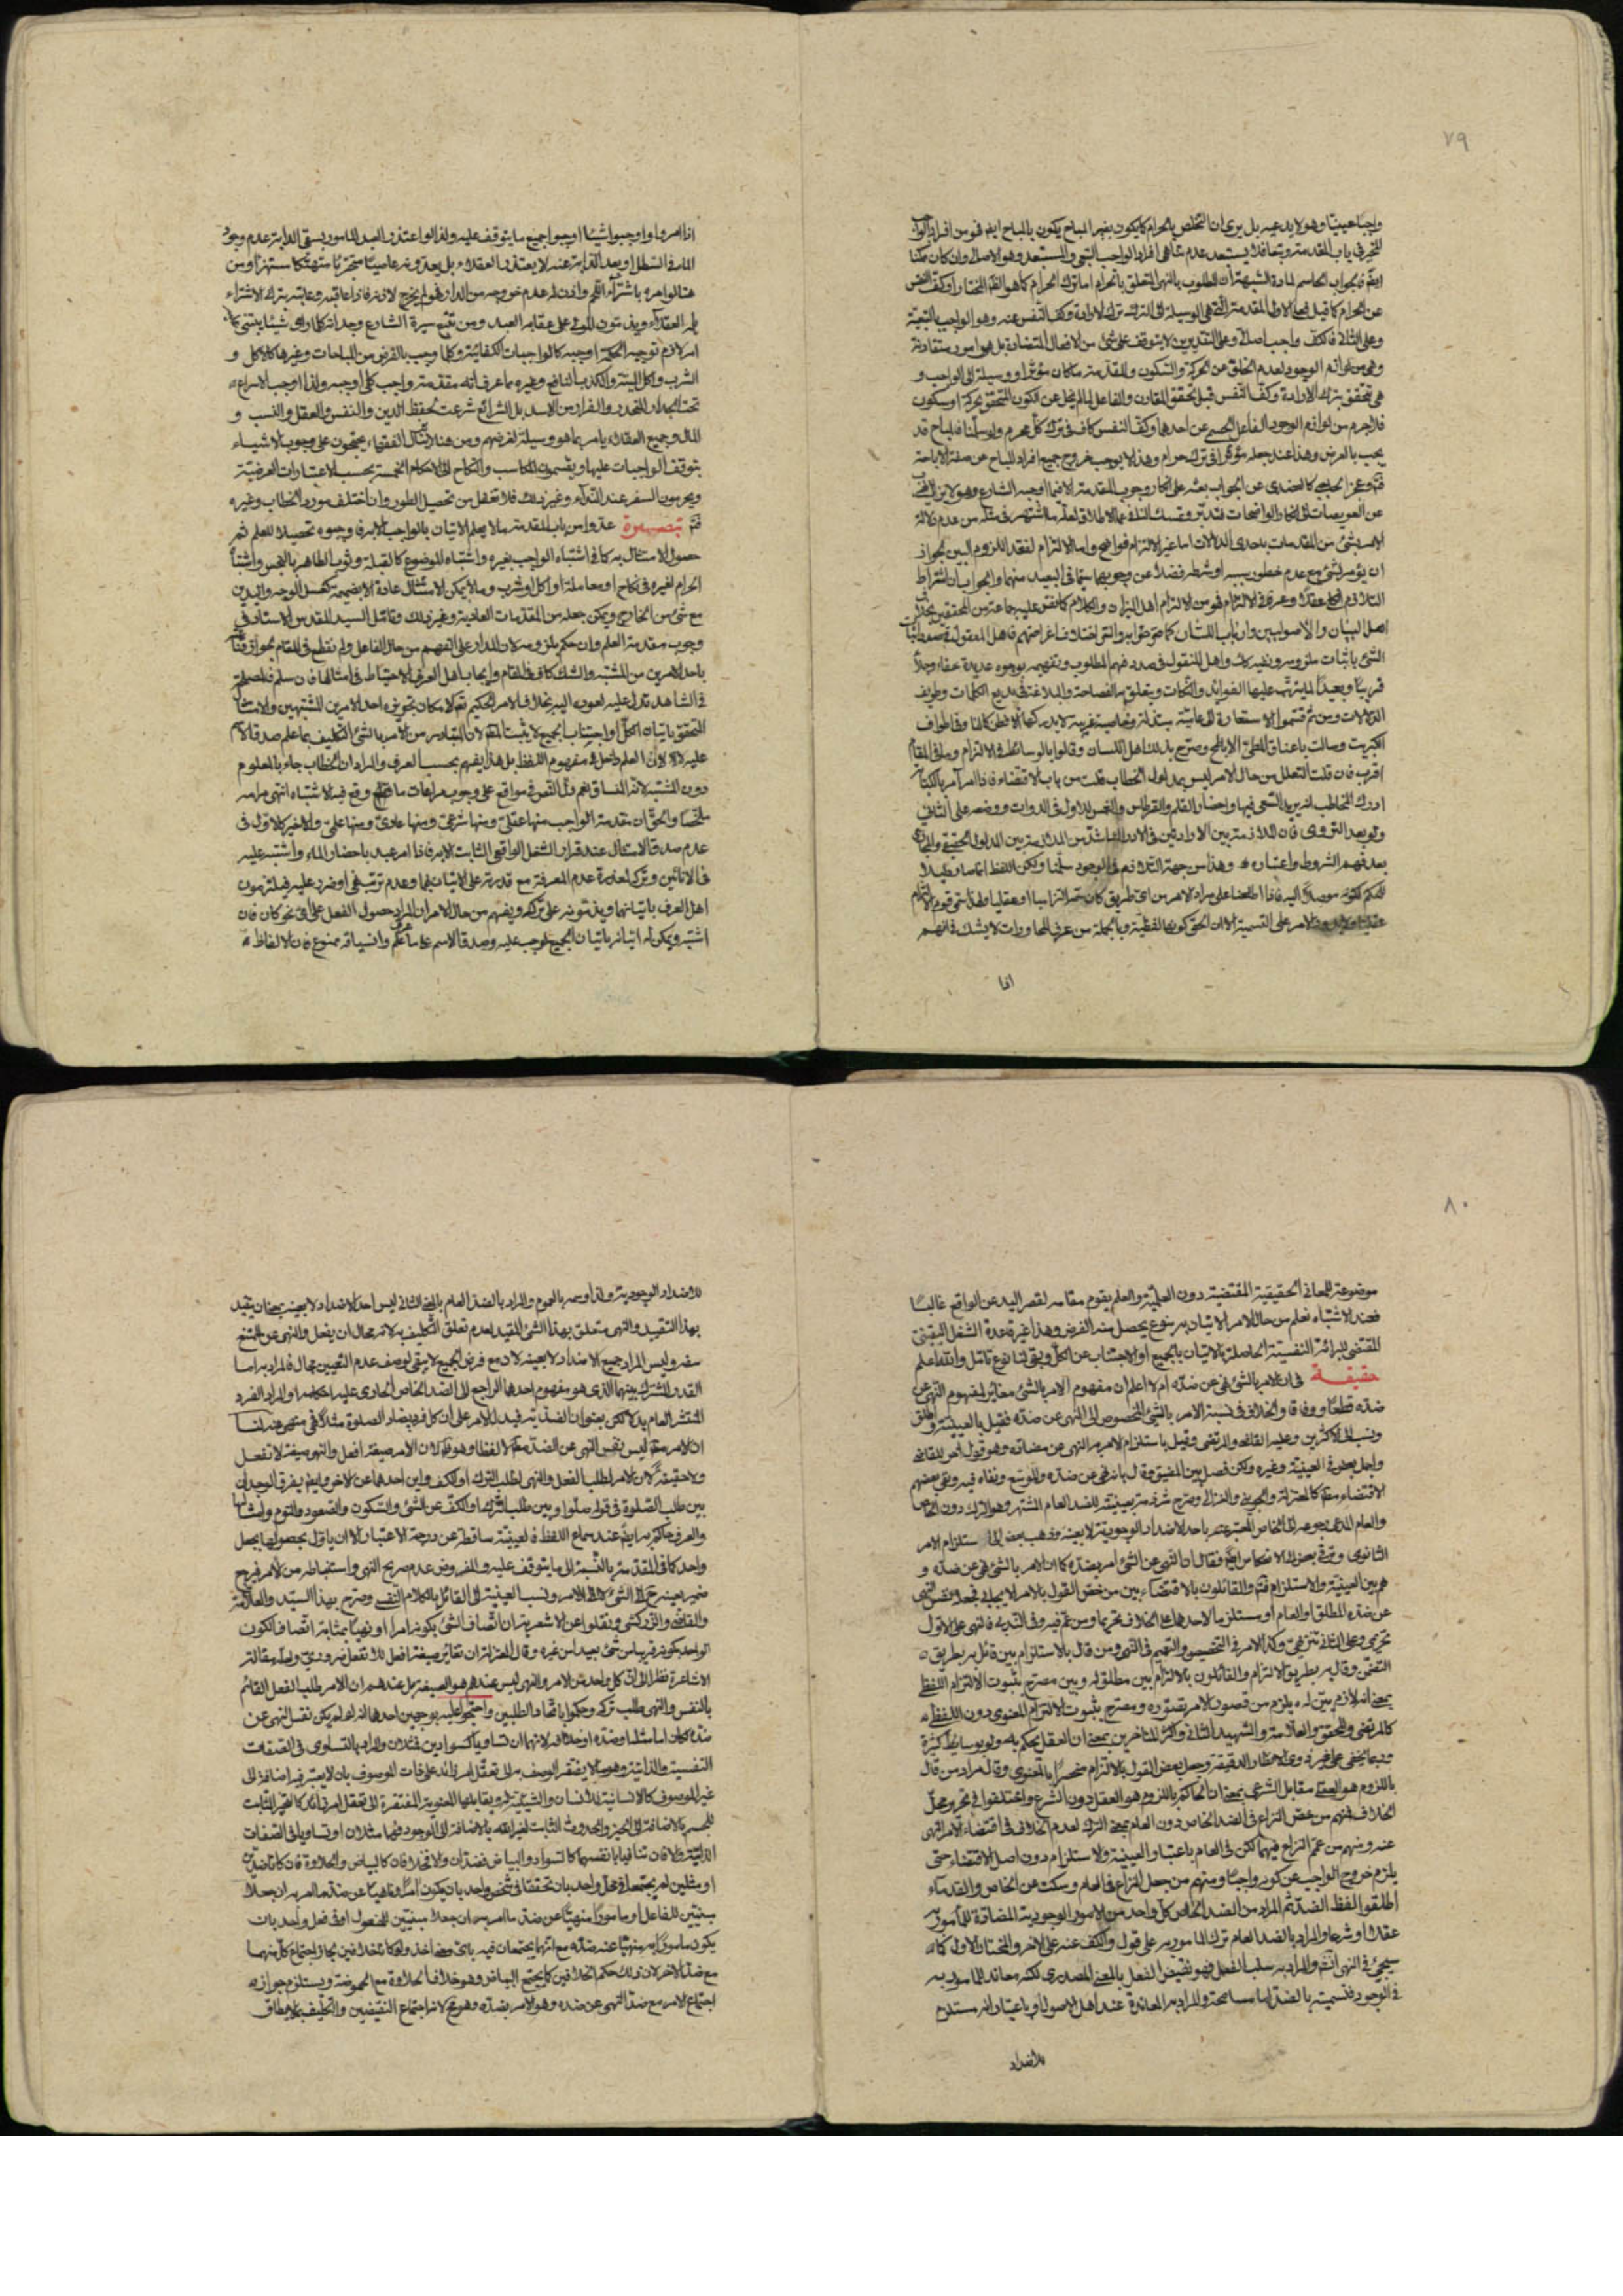 ٧٩
واجبا عينيا وهو لا يدعيه بل يرى ان التخلص بالحرام كما يكون بغير المباح يكون بالمباح ايضا فهو من افراد الواجب
المخير في باب المقدمة وتبعا فلا يستبعد عدم تناهي افراد الواجب التبعي والمستبعد هو الاصلي وان كان ممكنا
ايضا فالجواب الحاسم لمادة الشبهة ان المطلوب بالنهي المتعلق بالحرام اما ترك الحرام كما هو القلم المختار او كف النفس
عن الحرام كما قيل فعلى الاول المقدمة التي هي الوسيلة الى الترك ترك الارادة وكف النفس عنه وهو الواجب بالتبعية
وعلى الثاني فالكف واجب اصالة وعلى التقديرين لا يتوقف على شئ من الافعال المتضادة بل هو امور متقارنة
وهي من لوازم الوجود لعدم الخلو عن الحركة والسكون والمقدمة ما كان مؤثرا او وسيلة الى الواجب و
هي تتحقق بترك الارادة وكف النفس قبل تحقق المقارن والفاعل لما لم يخل عن الكون المتحقق بحركة او سكون
فلا جرم من لوازم الوجود الفاعل الجسم عن احدهما وكف النفس كاف في ترك كل محرم ولو سلمنا فالمباح قد
يجب بالعرض وهذا عند جعله مؤثرا في ترك حرام وهذا لا يوجب خروج جميع افراد المباح عن صفة الاباحة
فتم وعجز الحاجبي كالعضدي عن الجواب بعثه على انكار وجوب المقدمة الا فيما اوجبه الشارع
عن العويصات الى انكار الواضحات فتدبر وتمسك النافي مما الاطلاق لعله ما اشتهر في مثله من عدم دلالة
الامر بشئ من المقدمات باحدى الدلالات اما غير الالتزام فواضح واما الالتزام لفقد اللزوم البين لجواز
ان يؤمر بشئ مع عدم خطور سببه او شرطه فضلا عن وجوبهما سيما في البعيد منهما والجواب ان اشتراط
التلازم عقلا وعرفا في الالتزام فهو من الالتزام اهل الميزان والكلام كما نص عليه جماعة من المحققين بخلاف
اهل البيان والاصوليين وارباب اللسان كما صرحوا به والسر اختلاف اغراضهم فاهل المعقول في صدد اثبات
الشئ باثبات ملزومه ونفيه كذلك واهل المنقول في صدد فهم المطلوب وتفهيمه بوجوه عديدة خفاء وجلاء
قريبا وبعيدا لما يترتب عليها الفوائد والنكات ويتعلق به الفصاحة والبلاغة في بديع الكلمات وطريف
الدلالات ومن ثم قسموا الاستعارة الى عامية مبتذلة وخاصية غريبة لا يدركها الا الفطن كما لنا وفا طواف
الكبريت وسالت باعناق المطي الاباطح وصرح بذلك اهل اللسان وقالوا بالوسائط في الالتزام وما في المقام
اقرب فان قلت التعلل من حال الامر ليس بمدلول الخطاب قلت من باب الاقتضاء فاذا امر آمر بالكتابة
ادرك المخاطب انه يريد السعي فيها واحضار القلم والقرطاس والغمس للاول في الدوات ووضعه على الثاني
ولو بعد التروي فان الملازمة بين الارادتين في الارادة ناشئة من الملازمة بين المدلول الحقيقي والمجازي
بعد فهم الشروط واعتباره وهذا من جهة التلازم في الوجود سلمنا ولكن اللفظ انما صار دليلا
للحكم لكونه موصلا اليه فاذا اطلعنا على مراد الامر من اي طريق كان سمه التزاميا او عقليا ولهذا سمى قوم الالتزام
عقلية الامر على التسمية الا ان الحق كونها لفظية وبالجملة من عرف المحاورات لا يشك في انهم
اذا
اذا امروا واوجبوا شيئا اوجبوا جميع ما يتوقف عليه ولذا لو اعتذر العبد المامور بسقي الدابة بعدم وجود
الماء في السطل او بعد الدابة عنه لا يعتذر العقلاء بل يعدونه عاصيا متجريا متهتكا مستهزءا ومن
هنا لو امره باشتراء اللحم واذن له بعدم خروجه من الدار فهو لم يخرج لاذنه فاذا عاقبه وعاتبه بترك الاشتراء
لم العقلاء ويذمون المولى على عقابه العبد ومن تتبع سيرة الشارع وجدانه كلما راى شيئا يبتنى
امر لازم توجيه الحكم اوجبه كالواجبات الكفائية وكلما وجب بالفرض من المباحات وغيرها كالاكل و
الشرب واكل الميتة والكذب النافع وغيره مما عرف انه مقدمة واجب كلي اوجبه ولذا اوجب الاسراع
تحت الجدار للتحدر والفرار من الاسد بل الشرائع شرعت لحفظ الدين والنفس والعقل والنسب و
المال وجميع العقلاء يامر بما هو وسيلة لغرضهم ومن هنا لا يزال الفقهاء يحتجون على وجوب الاشياء
بتوقف الواجبات عليها ويقسمون المكاسب والنكاح الى الاحكام الخمسة بحسب الاعتبارات العرضية
ويحرمون السفر عند النداء وغير ذلك فلا تغفل من تحصيل الطور وان اختلف مورد الخطاب وغيره
فتم تبصرة عدوا من باب المقدمة ما لا يعلم الاتيان بالواجب الا به فاوجبوه تحصيلا للعلم ثم
حصول الامتثال به كما في اشتباه الواجب بغيره واشتباه الموضوع كالقبلة وثوب الطاهر بالنجس واشتباه
الحرام لغيره في نكاح او معاملة او اكل او شرب وما لا يمكن الامتثال عادة الا بضميمة كغسل الوجه واليدين
مع شئ من الخارج ويمكن جعله من المقدمات العادية وغير ذلك وتامل السيد المقدس الاستاد في
وجوب مقدمة العلم وان حكم بلزومه لان المدار على التفهم من حال الفاعل ولم نقطع في المقام بجواز قناعته
باحد الامرين من المشتبه والشك كاف في المقام وايجاب اهل العرف الاحتياط في امثالها فان سلم فلمصلحة
في الشاهد تدل عليه لعود اليه بخلاف الامر الحكيم تعالى لامكان تجويزه احد الامرين المشتبهين والامتثال
المتحقق باتيان الكل او اجتناب الجميع لا يثبت المقام لان المتبادر من الامر بالشئ التكليف بما علم صدق الاسم
عليه لا لان العلم داخل في مفهوم اللفظ بل هذا يفهم بحسب العرف والمراد ان الخطاب جاء بالمعلوم
دون المشتبه لانه المنساق نعم دل النص في مواقع على وجوب مراعات ما وقع فيه الاشتباه انتهى مرامه
ملخصا والحق ان مقدمة الواجب منها عقلي ومنها شرعي ومنها عادي ومنها علمي والاخير كالاول في
عدم صدق الامتثال عند قرار الشغل الواقعي الثابت الا به فاذا امر عبد باحضار الماء واشتبه عليه
في الانائين وترك لمعذرة عدم المعرفة مع قدرته على الاتيان بهما وعدم ترتب نفي او ضرر عليه فيلزمون
اهل العرف باتيانهما ويذمونه على تركه ويفهم من حال الامر ان المراد حصول الفعل على اي نحو كان فان
اشتبه ويمكن له اتيانه باتيان الجميع لوجب عليه وصدق الاسم على ما علم وانسياقه ممنوع فان الالفاظ
٨٠
موضوعة للمعاني الحقيقية المقتضية دون العلمية والعلم يقوم مقامه لقصر اليد عن الواقع غالبا
فعند الاشتباه نعلم من حال الامر الاتيان به بنوع يحصل منه الفرض وهذا غير قاعدة الشغل اليقيني
المقتضي للبرائة النفسية الحاصلة بالاتيان بالجميع او الاجتناب عن الكل وبقي لنا نوع تامل والله اعلم
حقيقة في ان الامر بالشئ نهي عن ضده ام لا اعلم ان مفهوم الامر بالشئ مغاير لمفهوم النهي عن
ضده قطعا ووفاقا والخلاف في نسبة الامر بالشئ المخصوص الى النهي عن ضده فقيل بالعينية واطلق
ونسب الى الاكثرين وعليه القاضي والمرتضى وقيل باستلزام الامر النهي عن مضاده وهو قول اخر للقاضي
واجل بعض في العينية وغيره ولكن فصل بين المضيق وقال بانه نهي عن ضده والموسع ونفاه فيه ونفى بعضهم
الاقتضاء مطلقا كالمعتزلة والجويني والغزالي وصرح شرذمة بعينيته للضد العام المشتهر وهو الترك دون الخاص
والعام المدعى رجوعه الى الخاص المعتبر عنه باحد الاضداد الوجودية لا بعينه وذهب بعض الى استلزام الامر
الثانوي وترقى بعض الى الانعكاس ايضا فقال ان النهي عن الشئ امر بضده كما ان الامر بالشئ نهي عن ضده و
هم بين العينية والاستلزام فتم والقائلون بالاقتضاء بين من خص القول بالامر الايجابي فجعله نفس النهي
عن ضده المطلق او العام او مستلزما لاحدهما على الخلاف تحريما ومن عم فيه وفي الندب فالنهي على الاول
تحريمي وعلى الثاني تنزيهي وكذا الامر في التخصيص والتعميم في النهي ومن قال بالاستلزام بين قائل به بطريق
التضمن وقال به بطريق الالتزام والقائلون بالالتزام بين مطلق له وبين مصرح بثبوت الالتزام اللفظي
بمعنى انه لازم بين له يلزم من تصور الامر تصوره ومصرح بثبوت الالتزام المعنوي دون اللفظي
كالمرتضى والمحقق والعلامة والشهيد الثاني واكثر المتاخرين بمعنى ان العقل يحكم به ولو بوسايط كثيرة
وربما يخفى على غير ذوي الانظار الدقيقة وجعل بعض القول بالالتزام منحصرا بالمعنوي وقال مراد من قال
باللزوم هو العقلي مقابل الشرعي بمعنى ان الحاكم باللزوم هو العقل دون الشرع واختلفوا في تحرير محل
الخلاف فمنهم من خص النزاع في الضد الخاص دون العام بمعنى الترك لعدم الخلاف في اقتضاء الامر النهي
عنه ومنهم من عمم النزاع فيهما لكن في العام باعتبار العينية والاستلزام دون اصل الاقتضاء حتى
يلزم خروج الواجب عن كونه واجبا ومنهم من جعل النزاع في العام وسكت عن الخاص والقدماء
اطلقوا لفظ الضد ثم المراد من الضد الخاص كل واحد من الامور الوجودية المضادة للمامور به
عقلا او شرعا والمراد بالضد العام ترك المامور به على قول والكف عنه على الاخر والمختار الاول كما
سيجئ في النهي انشم والمراد به سلب الفعل فهو نقيض الفعل بالمعنى المصدري لكنه معاند للمامور به
في الوجود فتسميته بالضد اما مسامحة والمراد به المعاندة عند اهل الاصول او باعتبار انه مستلزم
للاضداد
للاضداد الوجودية ولذا وصه بالعموم والمراد بالضد العام بالمعنى الثاني ليس احد الاضداد لا بعينه بمعنى ان يقيد
بهذا التقييد والنهي متعلق بهذا الشئ المقيد لعدم تعلق التكليف به لانه محال ان يفعل والنهي عن الممتنع
سفه وليس المراد جميع الاضداد لا بعينه لان مع فرض الجميع لا يبقى لوصف عدم التعيين مجال فالمراد به اما
القدر المشترك بينهما الذي هو مفهوم احدها الراجع الى الضد الخاص الجاري عليه احكامه او المراد الفرد
المنتشر العام بدلا لكن بعنوان الضدية فيدل الامر على ان كل فرد يضاد الصلوة مثلا فهي منهي عنه لنا
ان الامر مط ليس نفس النهي عن الضد مط لا لفظا وهو ظاهر لان الامر صيغة افعل والنهي صيغة لا تفعل
ولا حقيقة لان الامر لطلب الفعل والنهي لطلب الترك او الكف واين احدهما عن الاخر وايضا يفرق الوجدان
بين طلب الصلوة في قوله صلوا وبين طلب الترك او الكف عن الشئ والسكون والقعود والنوم وامثالها
والعرف حاكم به ايضا عند سماع اللفظ فالعينية ساقطة عن درجة الاعتبار الا ان ياول بحصولهما بجعل
واحد كما في المقدمة بالنسبة الى ما يتوقف عليه والمفروض عدم صريح النهي واستنباطه من الامر فيرجع
ضمير بعينه الى الشئ لا الى الامر ونسب العينية الى القائل بالكلام النفسي وصرح بهذا السيد والعلامة
والقاضي والزركشي ونقلوا عن الاشعرية ان اتصاف الشئ بكونه امرا او نهيا بمثابة اتصاف الكون
الواحد بكونه قريبا من شئ بعيدا من غيره وقال المعتزلة ان تغاير صيغة افعل للا تفعل ضروري ولعله مقالة
الاشاعرة نظرا الى ان كل واحد من الامر والنهي ليس عندهم هو الصيغة بل عندهم ان الامر طلب الفعل القائم
بالنفس والنهي طلب تركه وحكموا باتحاد الطلبين واحتجوا عليه بوجهين احدهما انه لو لم يكن نفس النهي عن
ضده لكان اما مثله او ضده او خلافه لانهما ان تساويا كسوادين فمثلان والمراد بالتساوي في الصفات
النفسية والذاتية وهو ما لا يفتقر الوصف به الى تعقل امر زائد على ذات الموصوف بان لا يعتبر فيه اضافة الى
غير الموصوف كالانسانية للانسان والشيئية له ويقابلها المعنوية المفتقرة الى تعقل امر زائد كالتحيز الثابت
للجسم بالاضافة الى الحيز والحدوث الثابت لغير الله بالاضافة الى الوجود فهما مثلان او تساويا في الصفات
الذاتية والا فان تنافيا بانفسهما كالسواد والبياض فضدان والا فخلافان كالبياض والحلاوة فان كانا ضدين
او مثلين لم يجتمعا في محل واحد بان تحققا في شخص واحد بان يكون آمرا وناهيا عن ضد ما امر به ان جعلا
مبنيين للفاعل او مامورا منهيا عن ضد ما امر به ان جعلا مبنيين للمفعول او في فعل واحد بان
يكون مامورا به منهيا عنه ضده مع انهما يجتمعان فيه باي معنى اخذ ولو كانا خلافين لجاز اجتماع كل منهما
مع ضد الاخر لان ذلك حكم الخلافين كما يجتمع البياض وهو خلاف الحلاوة مع الحموضة ويستلزم جوازه
اجتماع الامر مع ضد النهي عن ضده وهو الامر بضده وهو مح لانه اجتماع النقيضين والتكليف بما لا يطاق